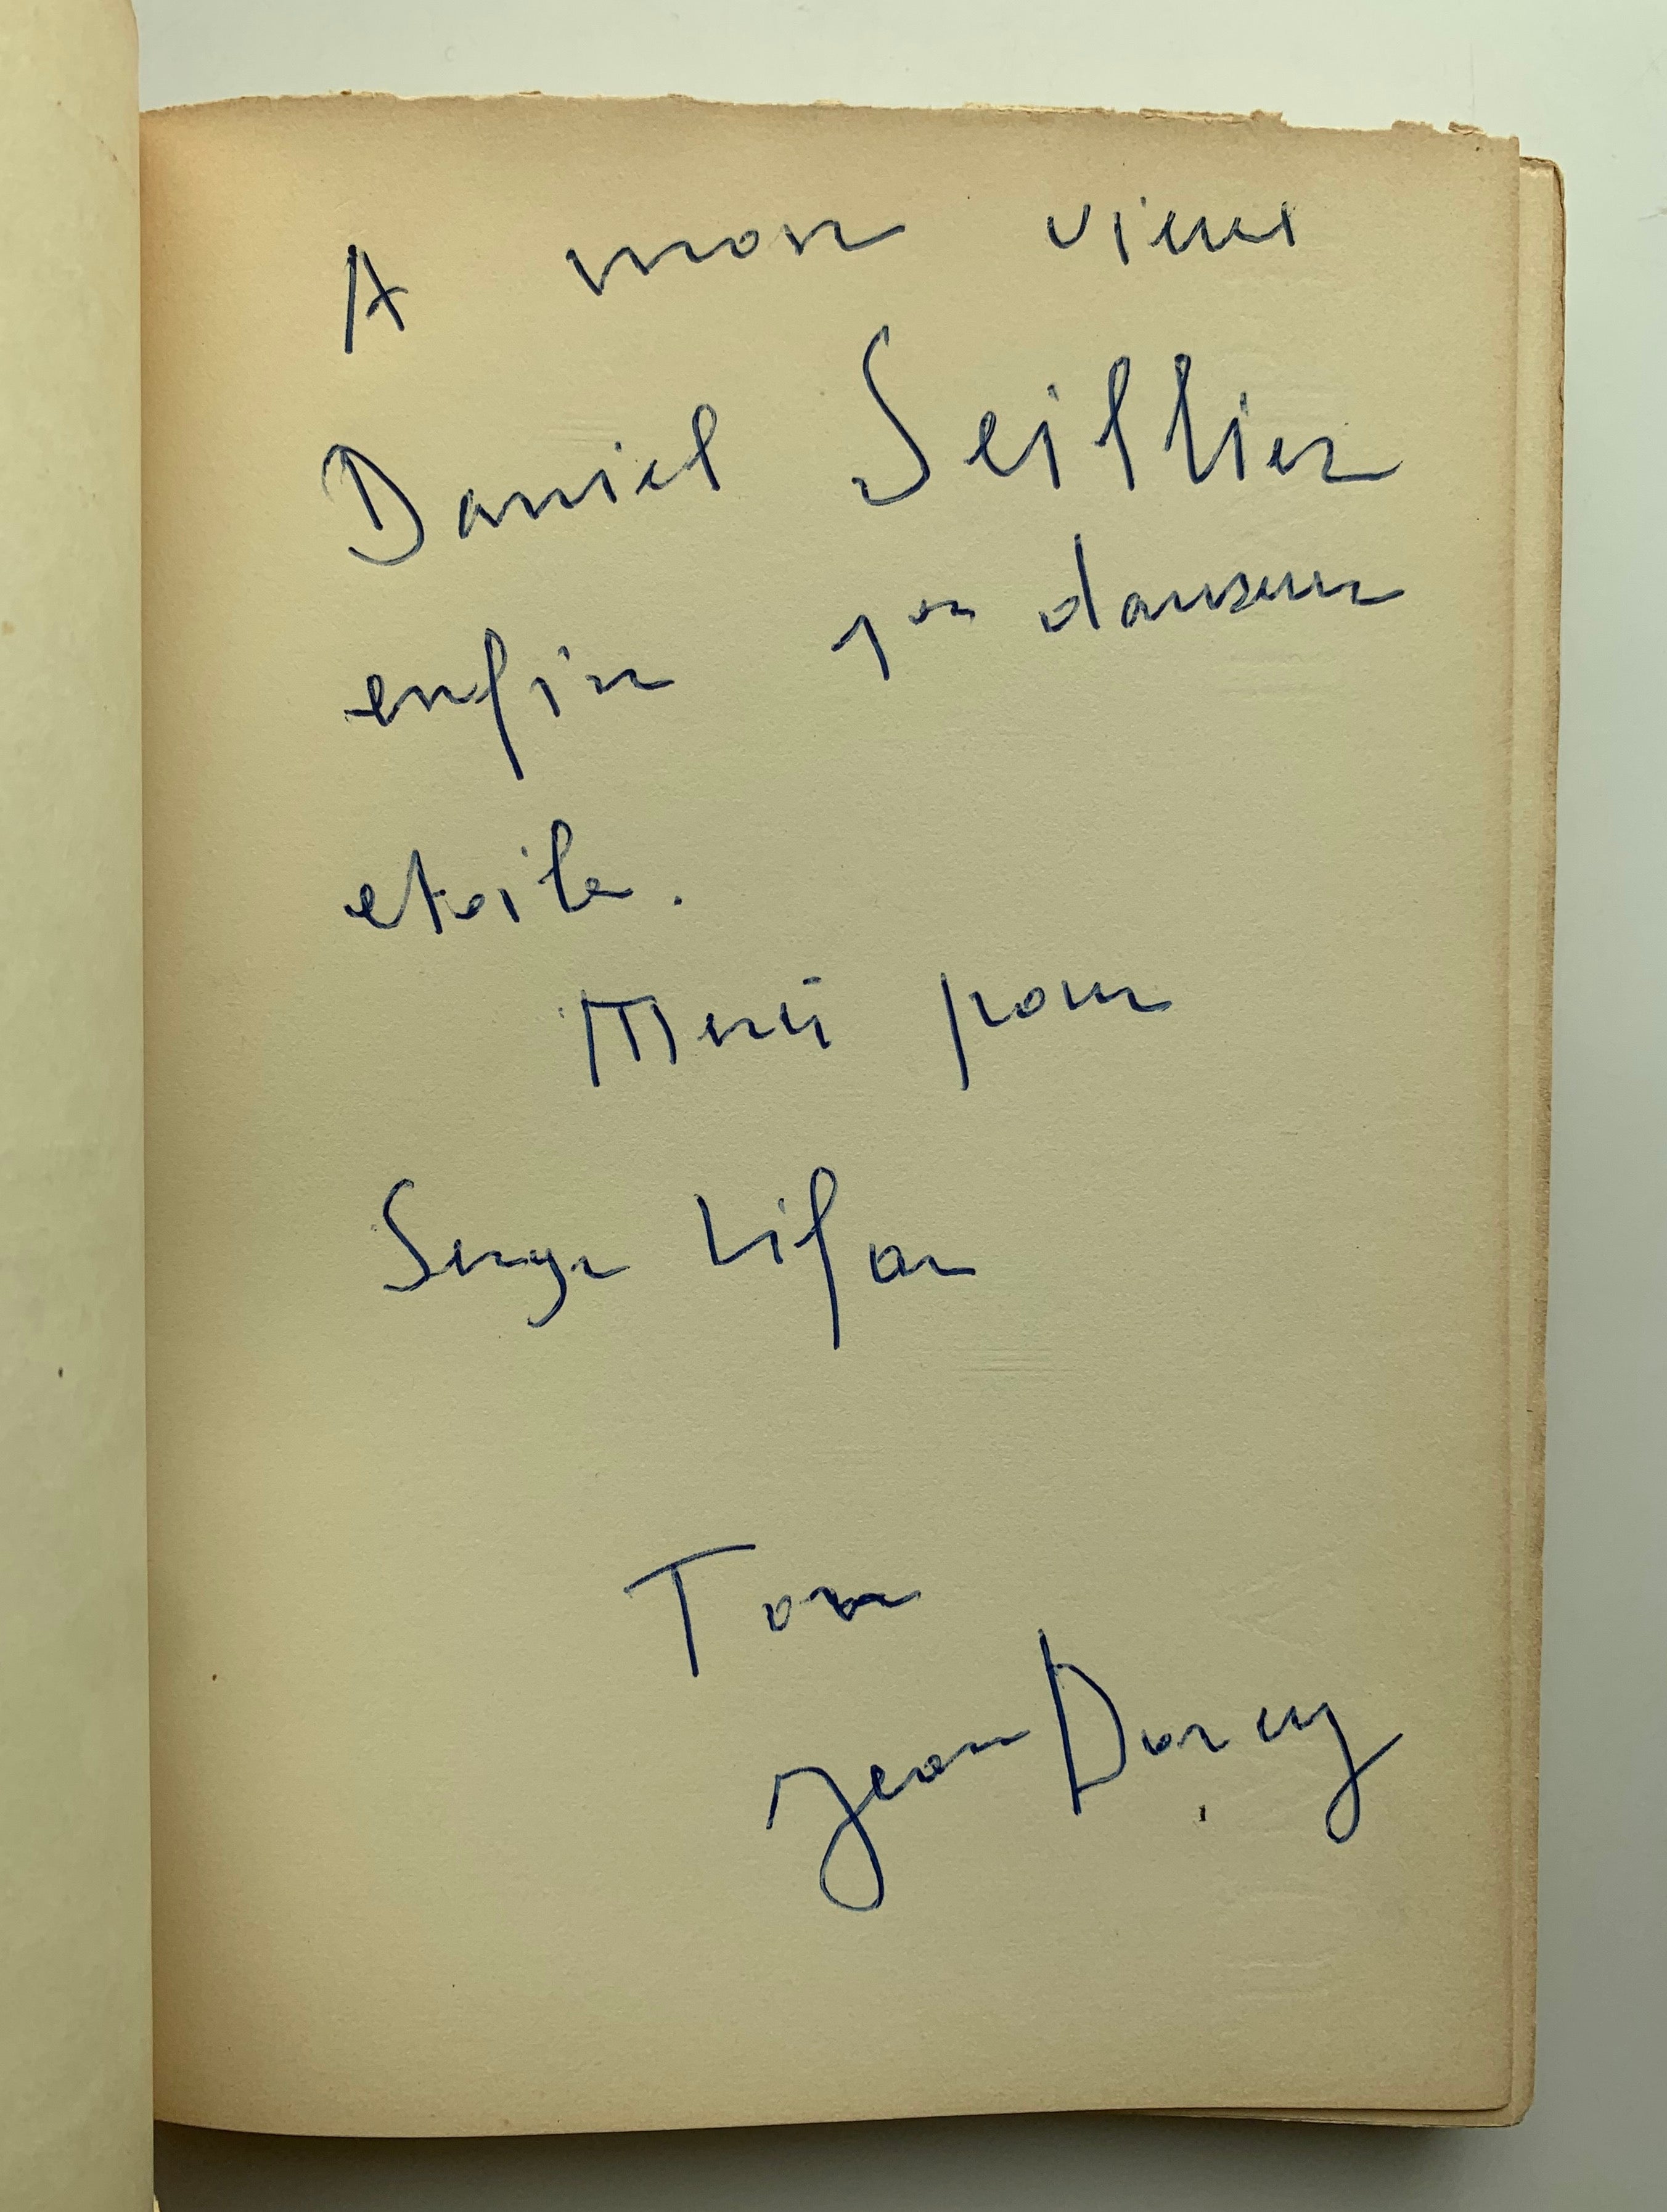 A mon vieux
Daniel Seillier
enfin 1er danseur
etoile.
Merci pour
Serge Lifar
Ton
Jean Dorcy